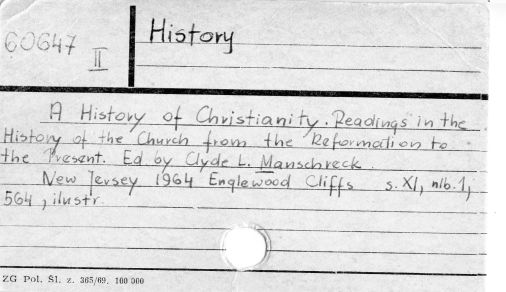 60647 II
History
A History of Christianity. Readings in the
History of the Church from the Reformation to
the Present. Ed by Clyde L. Manschreck.
New Jersey 1964 Englewood Cliffs s. XI, nlb. 1,
564, ilustr.
ZG Pol. Śl. z. 365/69. 100 000